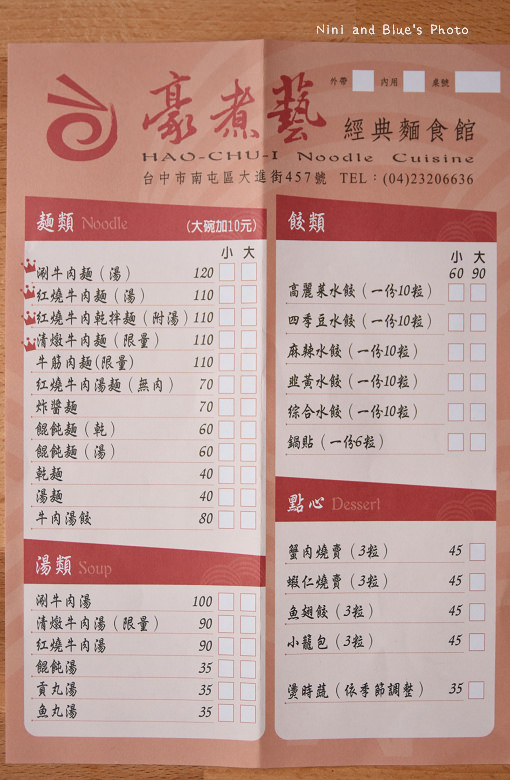 Nini and Blue's Photo
外帶 內用 桌號
豪煮藝 經典麵食館
HAO-CHU-I Noodle Cuisine
台中市南屯區大進街457號 TEL：(04)23206636
麵類 Noodle (大碗加10元)
小 大
涮牛肉麵（湯） 120
紅燒牛肉麵（湯） 110
紅燒牛肉乾拌麵（附湯） 110
清燉牛肉麵（限量） 110
牛筋肉麵(限量) 110
紅燒牛肉湯麵（無肉） 70
炸醬麵 70
餛飩麵（乾） 60
餛飩麵（湯） 60
乾麵 40
湯麵 40
牛肉湯餃 80
湯類 Soup
涮牛肉湯 100
清燉牛肉湯（限量） 90
紅燒牛肉湯 90
餛飩湯 35
貢丸湯 35
魚丸湯 35
餃類
小 大
60 90
高麗菜水餃（一份10粒）
四季豆水餃（一份10粒）
麻辣水餃（一份10粒）
韭黃水餃（一份10粒）
綜合水餃（一份10粒）
鍋貼（一份6粒）
點心 Dessert
蟹肉燒賣（3粒） 45
蝦仁燒賣（3粒） 45
魚翅餃（3粒） 45
小籠包（3粒） 45
燙時蔬（依季節調整） 35